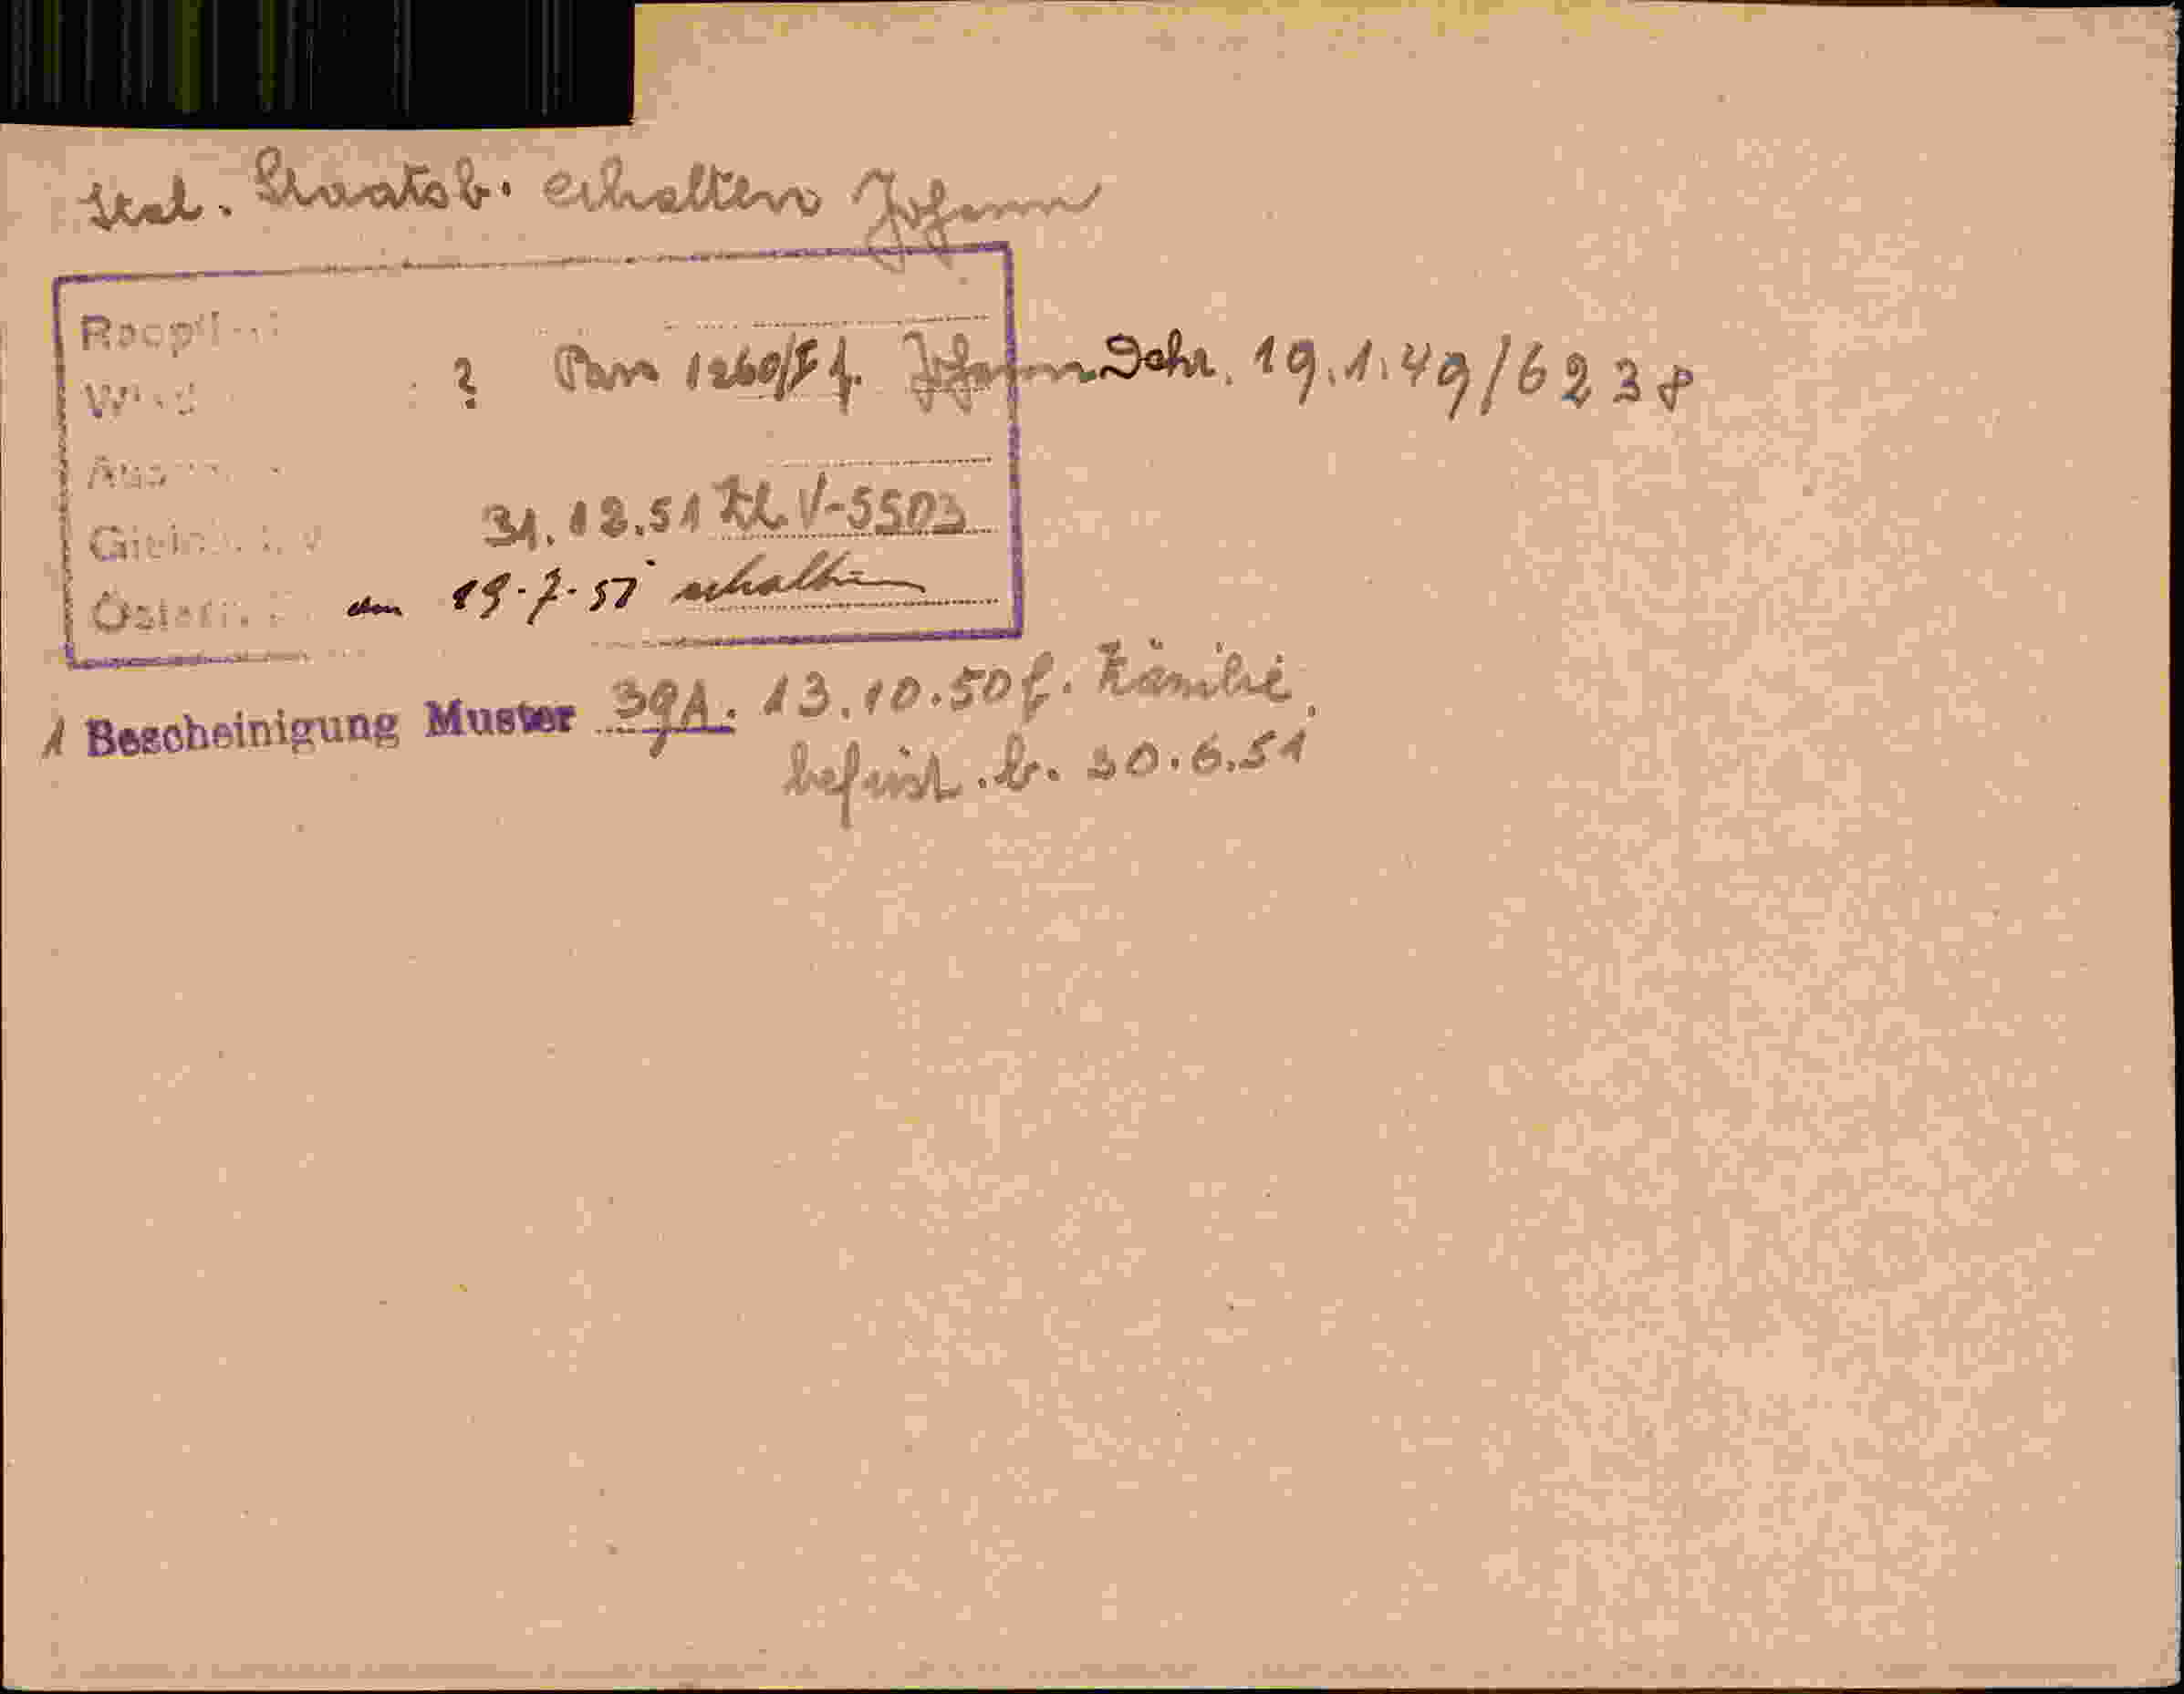 Ital. Staatsb. erhalten Johann
? Pass 1260/ f. Johann Dehr. 19.1.49/6238
31.12.51 Kl. V-5503
am 19-7-51 erhalten
1 Bescheinigung Muster 39A. 13.10.50 f. Familie,
befrist. b. 30.6.51